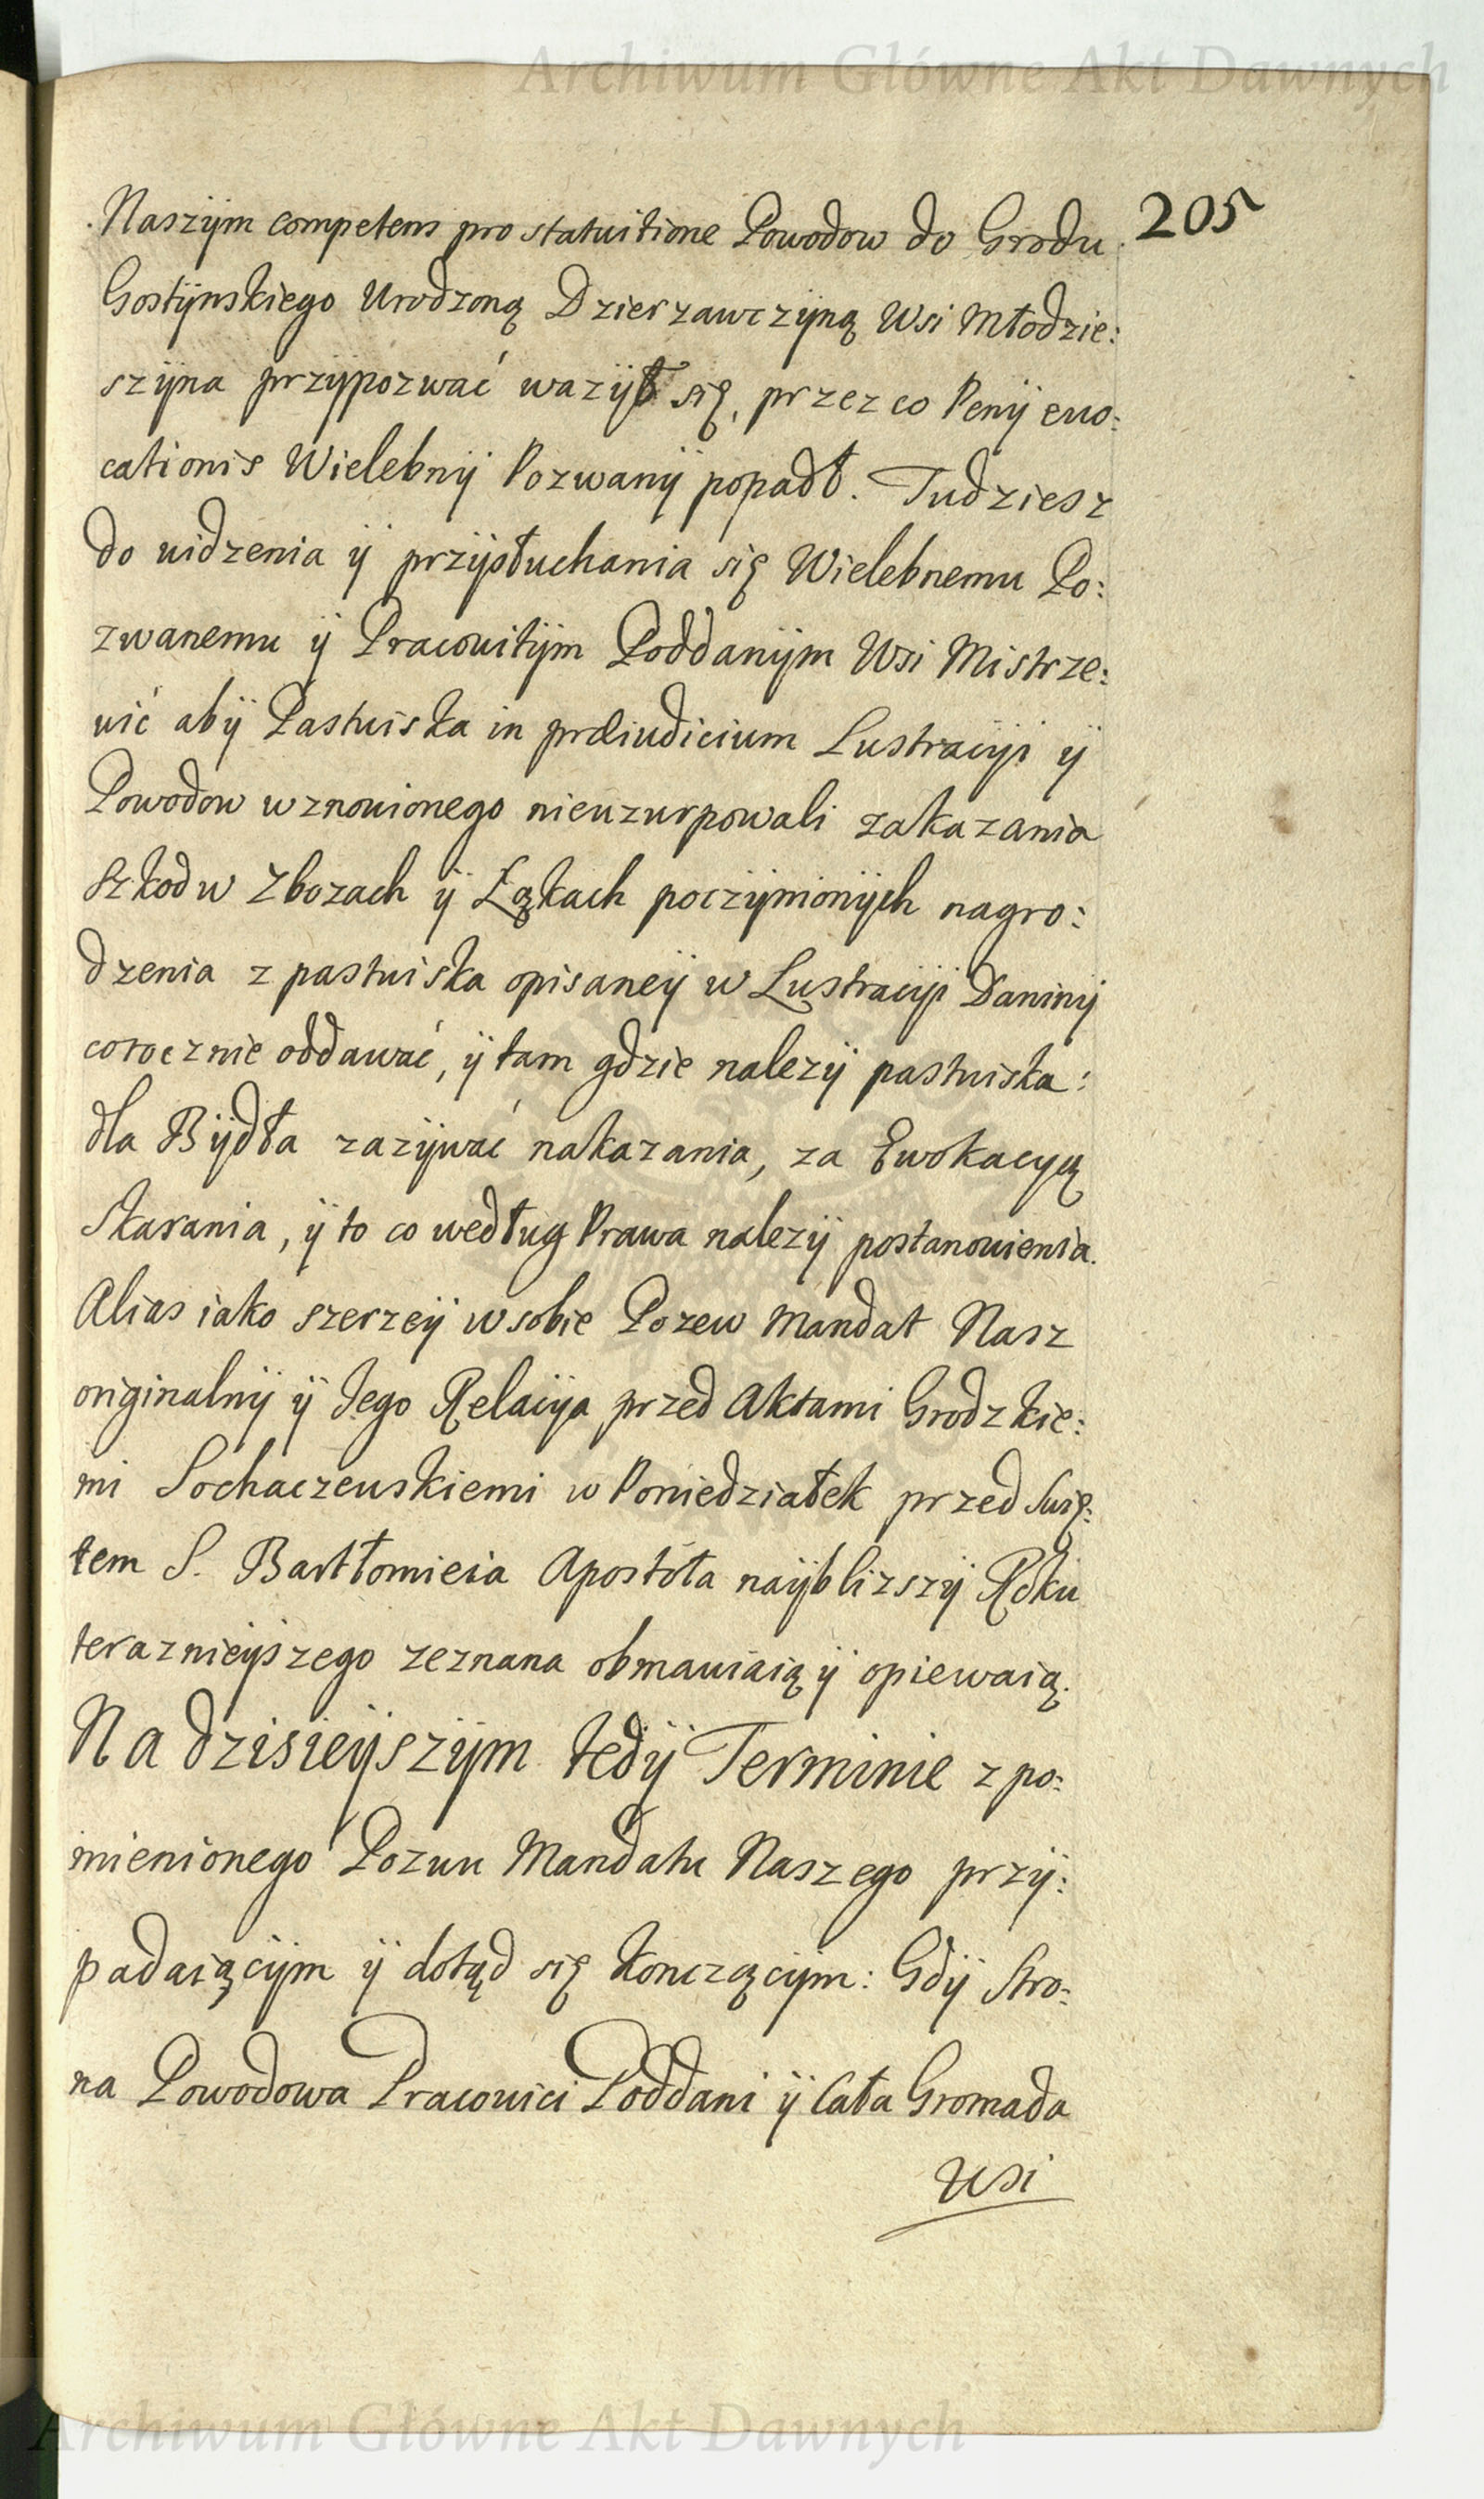 Archiwum Główne Akt Dawnych
205
Naszÿm competens pro statuitione Powodow do Grodu
Gostÿnskiego Urodzoną Dzierzawczÿną Wsi Młodzie:
szÿna przÿpozwać wazÿł się, przez co Penÿ evo:
cationis Wielebnÿ Pozwanÿ popadł. Tudziesz
do widzenia ÿ przÿsłuchania się Wielebnemu Po:
zwanemu ÿ Pracowitÿm Poddanÿm Wsi Mistrze:
wić abÿ Pastwiska in præiudicium Lustracÿi ÿ
Powodow wznowionego nieuzurpowali zakazania
szkod w Zbozach ÿ Łąkach poczÿnionÿch nagro:
dzenia z pastwiska opisaneÿ w Lustracÿi Daninÿ
corocznie oddawać, ÿ tam gdzie nalezÿ pastwiska:
dla Bÿdła zazÿwać nakazania, za Ewokacyą
skarania, ÿ to co według Prawa nalezÿ postanowienia.
Alias iako szerzeÿ w sobie Pozew Mandat Nasz
originalnÿ ÿ Jego Relacÿa przed Aktami Grodzkie:
mi Sochaczewskiemi w Poniedziałek przed Swię:
tem S. Bartłomieia Apostoła naÿblizszÿ Roku
teraznieÿszego zeznana obmawiaią ÿ opiewaią.
Na dzisieÿszÿm tedÿ Terminie z po:
mienionego Pozwu Mandatu Naszego przÿ:
padaiącÿm ÿ dotąd się konczącÿm: Gdÿ Stro:
na Powodowa Pracowici Poddani ÿ Cała Gromada
Wsi
Archiwum Główne Akt Dawnych